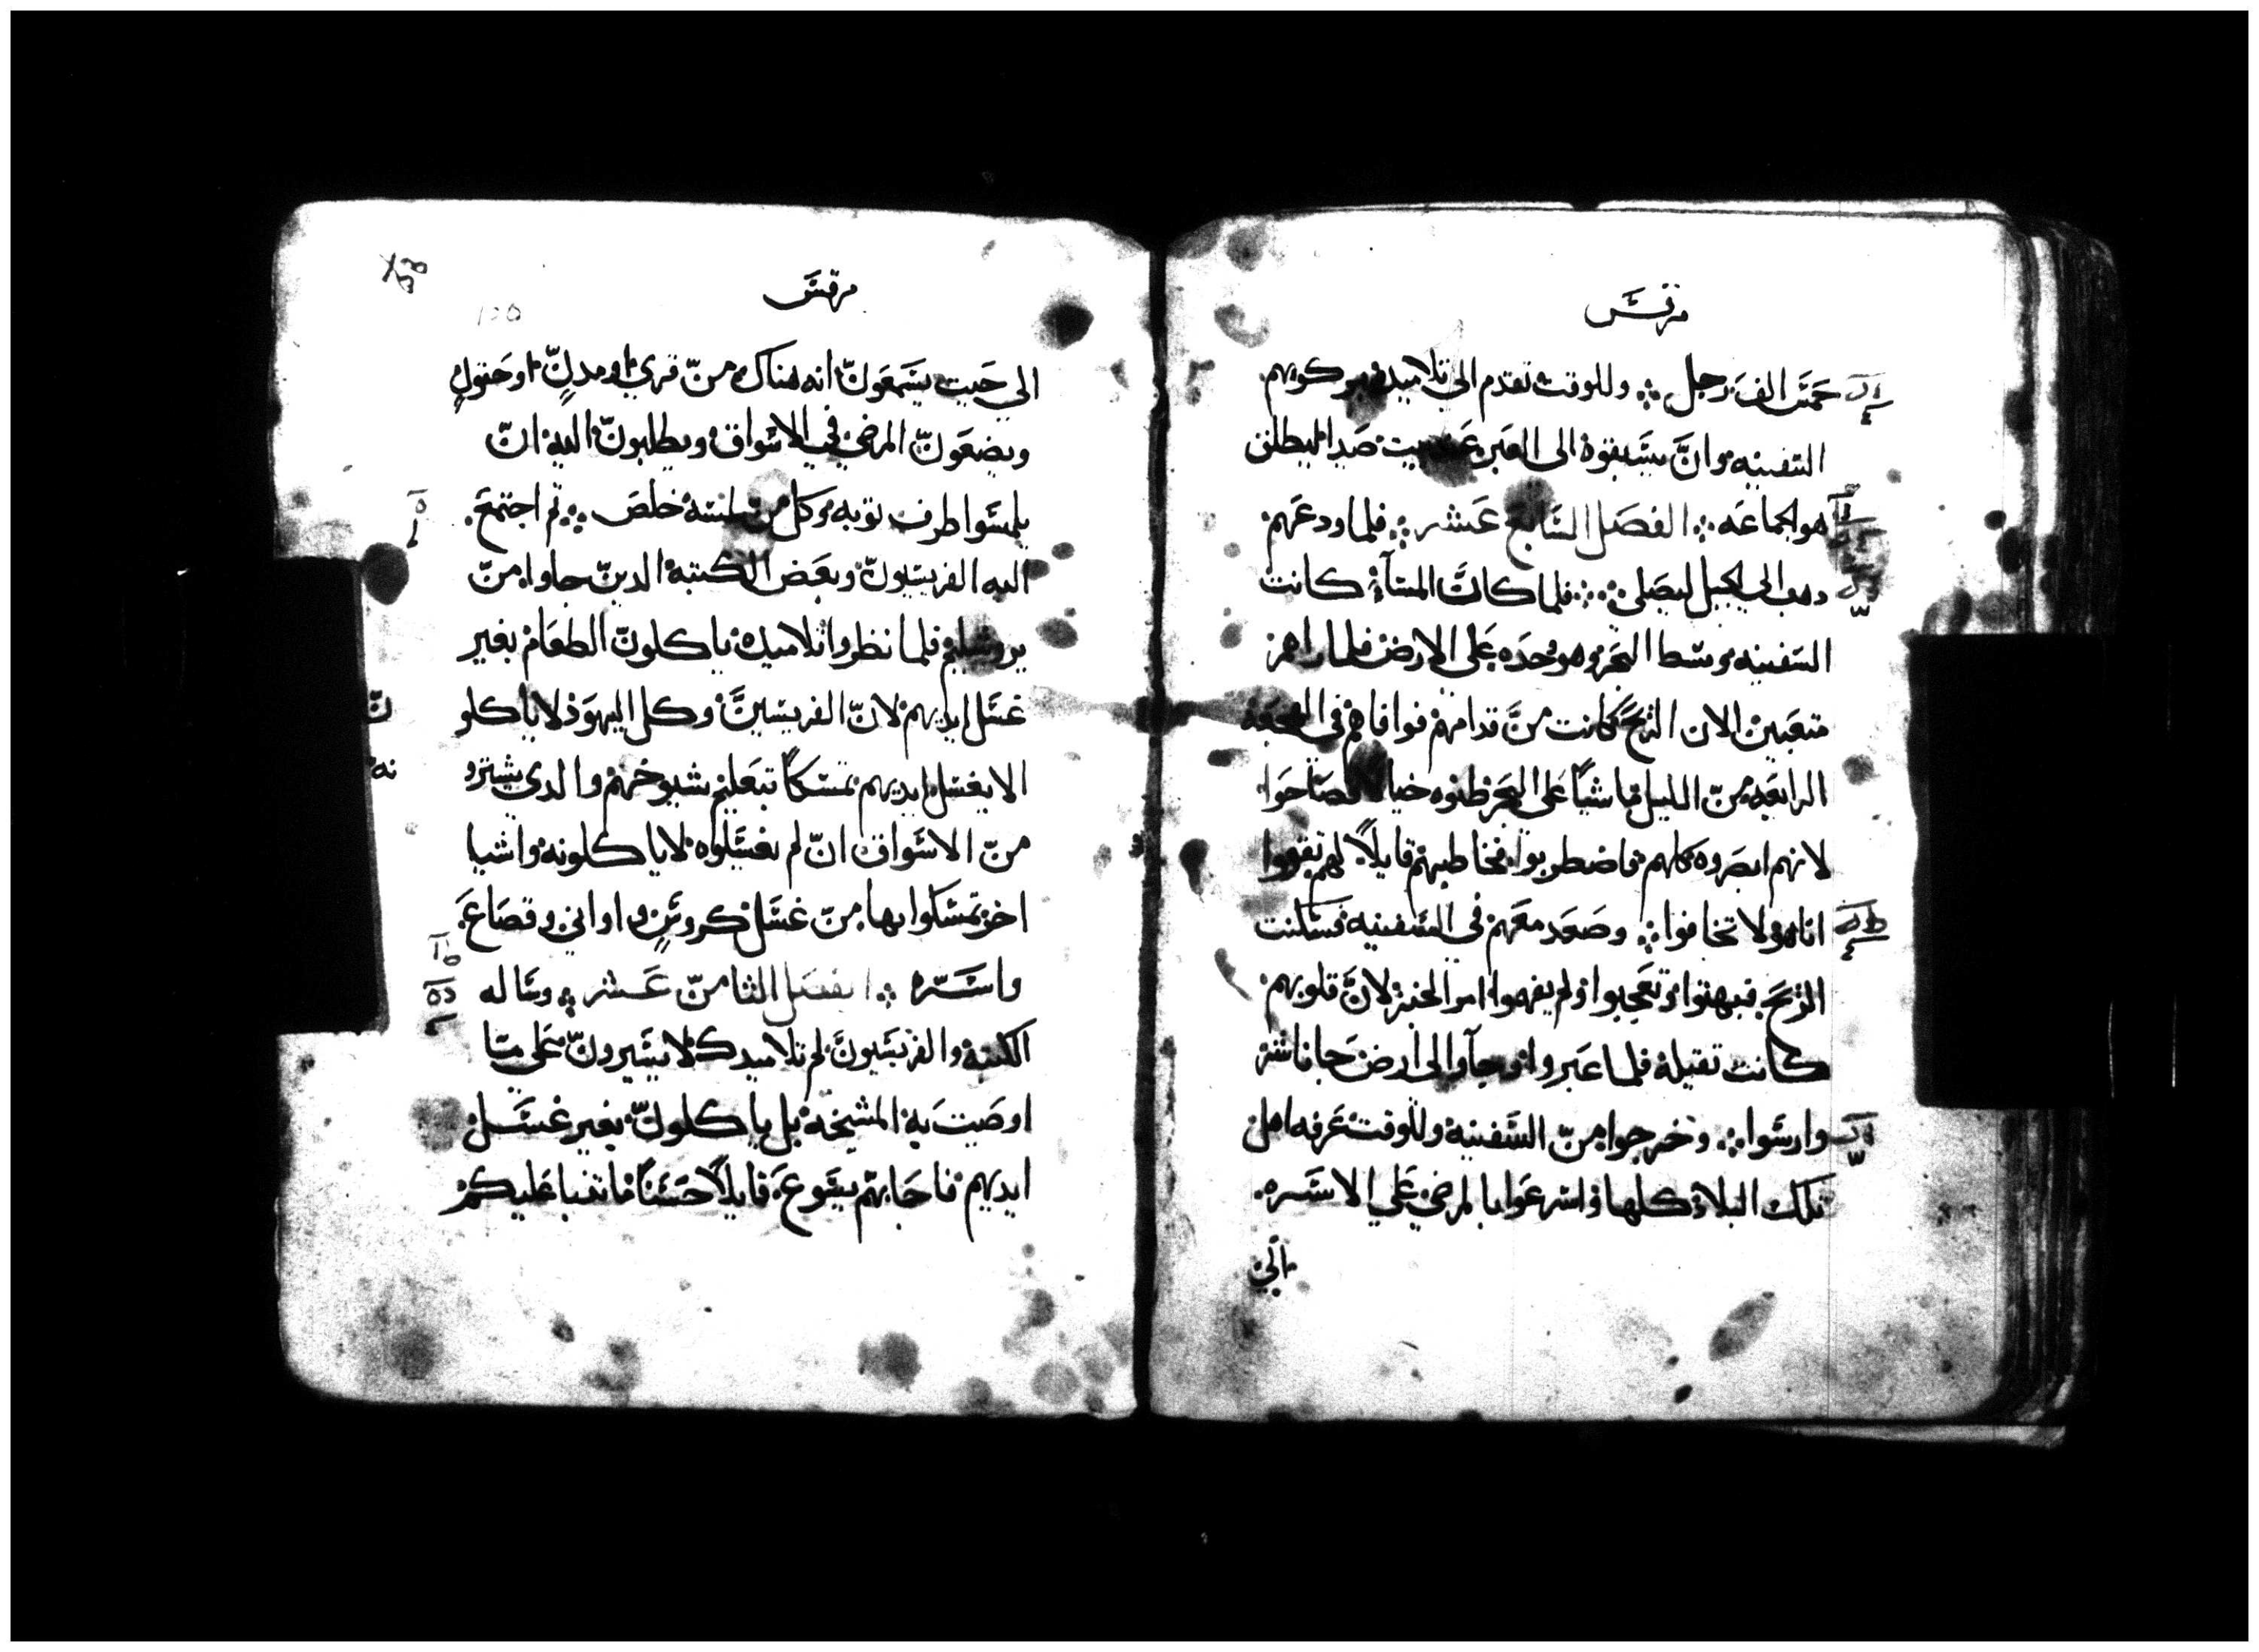 مرقس
خمس الف رجل ⁘ وللوقت تقدم الى تلاميده بركوبهم
السفينه وان يسبقوه الى العبر عند بيت صيدا ليطلق
هو الجماعه ⁘ الفصل السابع عشر ⁘ فلما ودعهم
دهب الى الجبل ليصلى ⁘ فلما كان المسآء كانت
السفينه وسط البحر وهو وحده على الارض فلما راهم
متعبين لان الريح كانت من قدامهم فوافاهم فى الهجعه
الرابعه من الليل ماشياً على البحر ظنوه خيالا فصاحوا
لانهم ابصروه كلهم فاضطربوا فخاطبهم قايلاً لهم تقووا
انا هو لا تخافوا ⁘ وصعد معهم فى السفينه فسكنت
الريح فبهتوا وتعجبوا ولم يفهموا امر الخبز لان قلوبهم
كانت تقيله فلما عبروا وجآوا الى ارض جاناشر
وارسوا ⁘ وخرجوا من السفينه وللوقت عرفه اهل
تلك البلاد كلها واسرعوا بالمرضي علي الاسره
الي
مرقس
١٥٥
الي حيت يسمعون انه هناك من قري او مدن او حقول
ويضعون المرضي في الاسواق ويطلبون اليه ان
يلمسوا طرف توبه وكل من لمسه خلص ⁘ تم اجتمع
اليه الفريسيون وبعض الكتبه الدين جاوا من
يروشليم فلما نظروا تلاميده ياكلون الطعام بغير
غسل ايديهم لان الفريسين وكل اليهود لا ياكلو
ن
الا بغسل ايديهم تمسكاً بتعليم شيوخهم والدي يشترو
نه
من الاسواق ان لم يغسلوه لا ياكلونه واشيا
اخر تمسكوا بها من غسل كروس واواني وقصاع
واسره ⁘ الفصل الثامن عشر ⁘ وساله
الكتبه والفريسيون لم تلاميدك لا يسيرون على ما
اوصت به المشيخه بل ياكلون بغير غسل
ايديهم فاجابهم يسوع قايلاً حسناً ما تنبا عليكم